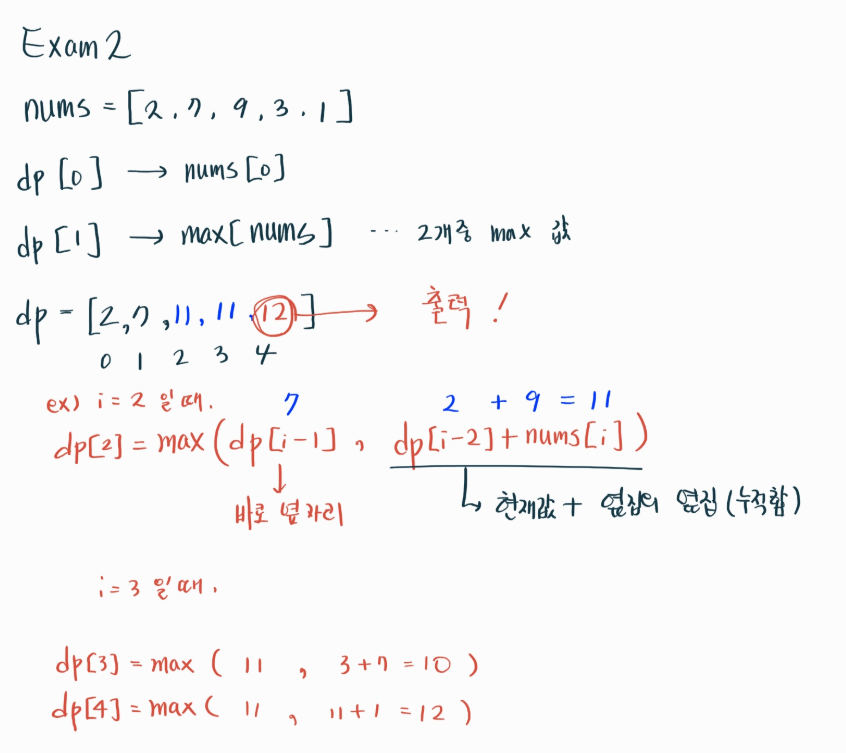 Exam 2
nums = [2, 7, 9, 3. 1]
dp [0] → nums [0]
dp [1] → max[nums] ... 2개중 max 값
dp = [2, 7, 11, 11, 12] → 출력 !
0 1 2 3 4
ex) i = 2 일때.
7 2 + 9 = 11
dp[2] = max (dp[i-1] , dp[i-2] + nums[i])
↓ ↳ 현재값 + 옆집의 옆집 (누적합)
바로 옆 자리
i = 3 일때.
dp[3] = max ( 11 , 3+7 = 10 )
dp[4] = max ( 11 , 11+1 = 12 )